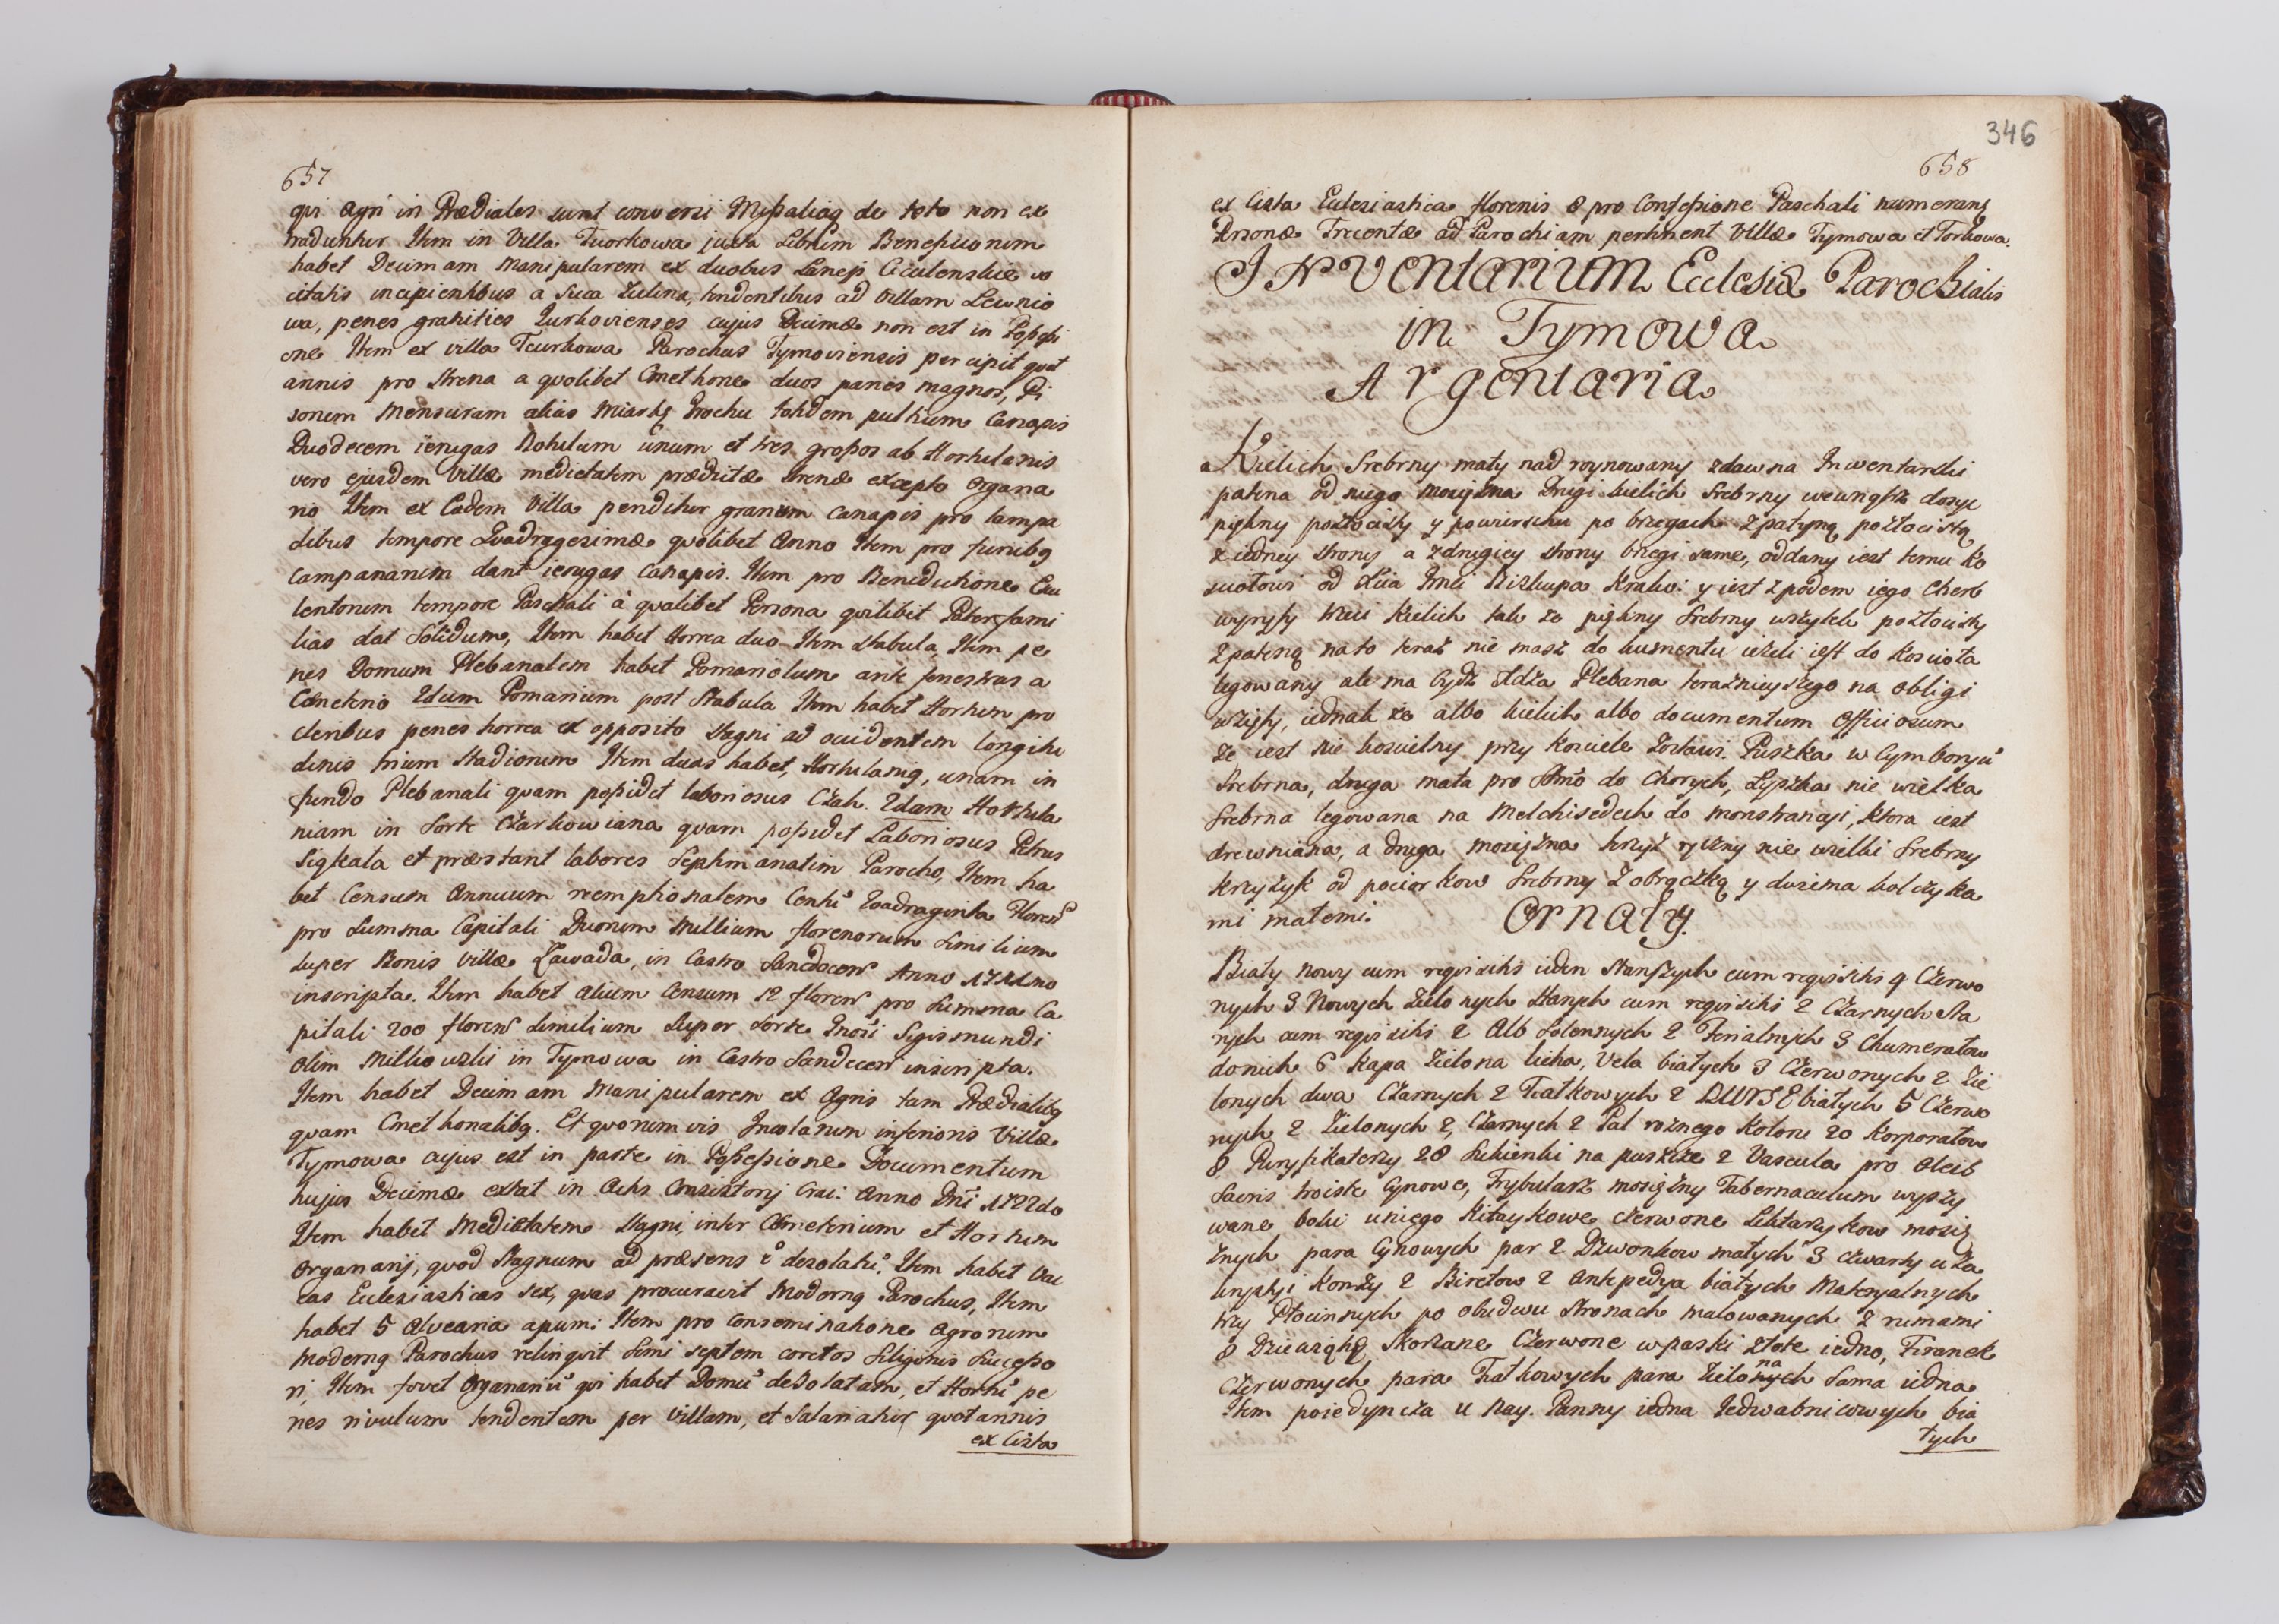 657
qvi Agri in Prædiales sunt conversi Missaliaq de toto non ex
traduntur Item in Villa Tworkowa juxta Librum Beneficiorum
habet Decimam Manipularem ex duobus Laneis Ciculenskie vo
citatis incipientibus a Siea Zielina, tendentibus ad Villam Lewnio
wa, penes granities Jurkovienses cujus Decimæ non est in Possessi
one Item ex villa Tcurkowa Parochus Tymoviensis percipit quot
annis pro strena a qvolibet Cmethone duos panes magnos, Pi
sorum Mensuram alias Miarkę Grochu totidem pultrium Canapis
Duodecem ierugas Rotulum unum et tres grossos ab Hortulanis
vero ejusdem Villæ medietatem prædictæ strenæ excepto Organa
rio Item ex Eadem Villa penditur granum canapis pro lampa
dibus tempore Qvadragesimæ qvolibet Anno Item pro funibq
Campanarum dant ierugas Canapis. Item pro Benedictione Escu
lentorum tempore Paschali à qvalibet Persona qvilibet Paterfami
lias dat Solidum, Item habet Horrea duo Item Stabula, Item pe
nes Domum Plebanalem habet Pomariolum ante fenestras a
Cæmeterio 2dum Pomarium post Stabula Item habet Hortum pro
oleribus penes horrea ex opposito Stagni ad occidentem longitu
dinis trium Stadiorum Item duas habet, Hortulaniq, unam in
fundo Plebanali quam possidet laboriosus Czah. 2dam Hortula
niam in Sorte Czarkowiana quam possidet Laboriosus Petrus
Sigkata et præstant labores Septimanatim Parocho, Item ha
bet Censum Annuum reemptionalem Centu Qvadraginta Floren
pro Summa Capitali Duorum Millium florenorum Similium
super Bonis Villæ Zawada, in Castro Sandecen Anno 1741mo
inscripta. Item habet alium Censum 12 floren pro Summa Ca
pitali 200 floren Similium Super Sorte Gnosi Sigismundi
olim Milkowski in Tymowa in Castro Sandecen inscripta.
Item habet Decimam Manipularem ex Agris tam Prædialibq
quam Cmethonalibq. Et quorumvis Incolarum inferioris Villæ
Tymowa cujus est in parte in Possessione Documentum
hujus Decimæ extat in Actis Consistorij Crac: Anno Dni 1722do
Item habet Medietatem Stagni, inter Cæmeterium et Hortum
Organarij, quod Stagnum ad præsens ẽ desolatũ. Item habet Vac
cas Ecclesiasticas sex, quas procuravit Modernq Parochus, Item
habet 5 Alvearia apum: Item pro Conseminatione Agrorum
Modernq Parochus relinquit Simi septem coretos Siliginis Successo
ri, Item fovet Organariũ qvi habet Domũ desolatam, et Hortũ pe
nes rivulum tendentem per Villam, et Salariatur quotannis
ex Cista
346
658
ex Cista Ecclesiastica florenis 8 pro Confessione Paschali numeranq
Personæ Trecentæ ad Parochiam pertinent Villæ Tymowa et Torkowa.
INVentariUM Ecclesiæ Parochialis
in Tymowa
Argentaria
Kielich Srebrny mały nad roynowany zdawna Inwentarski
patena od niego mosiężna Drugi kielich Srebrny wewnątrz dosyc
piękny pozłocisty y powierschu po brzegach z patyną pozłocistą
z iedney strony a zdrugiey strony brzegi same, oddany iest temu Ko
sciołowi od Xcia Jmci Biskupa Krakw: y iest z podem iego Cherb
wyryty trzeci Kielich tak ze piękny Srebrny wszytek pozłocisty
z pateną na to teraz nie masz do kumentu ieżeli iest do Koscioła
legowany ale ma bydz Xdza Plebana terazniejszego na obligi
wzięty, iednak że albo kielich albo documentum officiosum
że iest nie koscielny przy Kosciele Zostawi. Puszka w Cymboryũ
Srebrna, druga mała pro Ssmo do Chorych, Łyszka nie wielka
Srebrna legowana na Melchisedech do monstrancyi, ktora iest
drewniana, a druga mosiężna krzyż ryczny nie wielki Srebrny
Krzyżyk od paciorkow Srebrny Z obrączką y dwiema kolczyka
mi małemi. Ornaty.
Biały nowy cum reqvisitis ieden Starszych cum reqvisitis 4 Czerwo
nych 3 Nowych Zielonych Starych cum reqvisitis 2 Czarnych Sta
rych cum reqvisitis 2 Alb Solennych 2 Ferialnych 3 Chumerałow
do nich 6 Kapa Zielona licha, Vela białych 3 Czerwonych 2 Zie
lonych dwa Czarnych 2 Fiatkowych 2 BURSE białych 5 Czerwo
nych 2 Zielonych 2, Czarnych 2 Pal roznego Koloru 20 Korporałow
8 Puryfikaterzy 28 Sukienki na puszcze 2 Vascula pro Oleis
Sacris troiste Cynowe, Trybularz mosiężny Tabernaculum wyszy
wane boki uniego Kitaykowe czerwone Lichtarzykow mosię
żnych para Cynowych par 2 Dzwonkow małych 3 czwarty u Za
krystyi Komży 2 Biretow 2 Antepedya białych Materyalnych
trzy Płociennych po obudwu stronach malowanych z ramami
8 Dziewiąte Skorzane Czerwone w paski złote iedno, Firanek
Czerwonych para Fiatkowych para Zielonaych Sama iedna
Item poiedyncza u Nay. Panny iedna Jedwabnicowych bia
łych